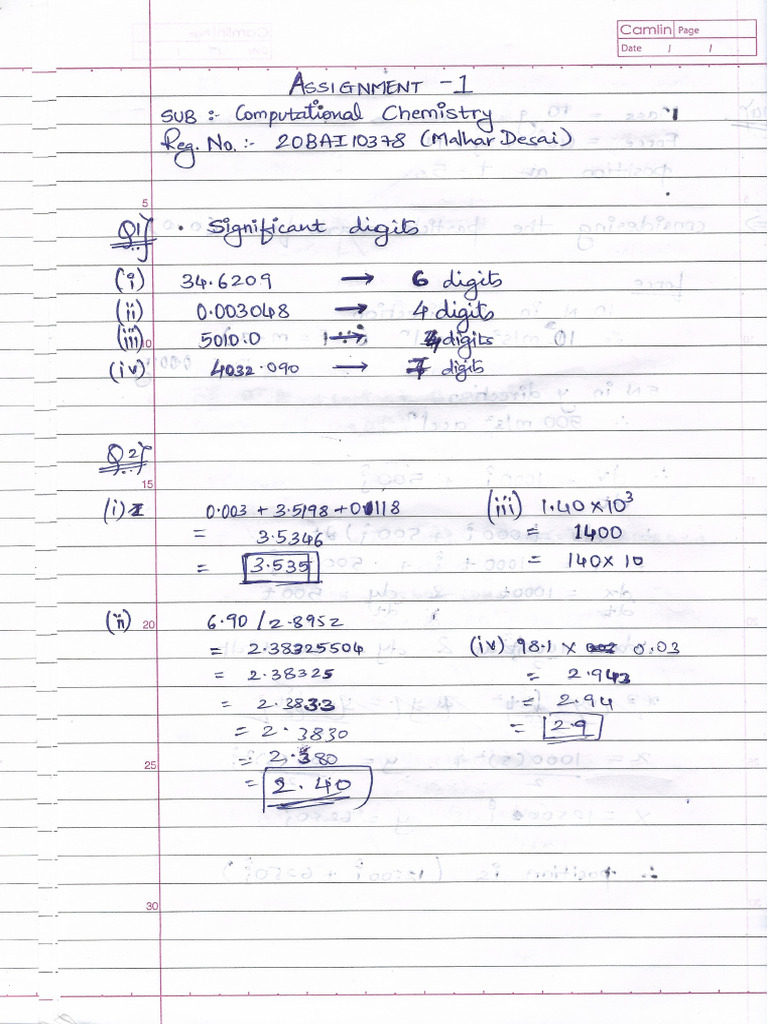 Camlin Page
Date / /
ASSIGNMENT -1
SUB :- Computational Chemistry
Reg. No. :- 20BAI10378 (Malhar Desai)
5
Q1) • Significant digits
(i) 34.6209 → 6 digits
(ii) 0.003048 → 4 digits
(iii) 5010.0 → digits
10
(iv) 4032.090 → 7 digits
Q2)
15
(i) 0.003 + 3.5198 + 0.0118
= 3.5346
= 3.535
(iii) 1.40 × 10³
= 1400
= 140 × 10
(ii) 20 6.90 / 2.8952
= 2.38325504
= 2.38325
= 2.3833
= 2.3830
= 2.380
25
= 2.40
(iv) 98.1 × 0.03
= 2.943
= 2.94
= 2.9
30